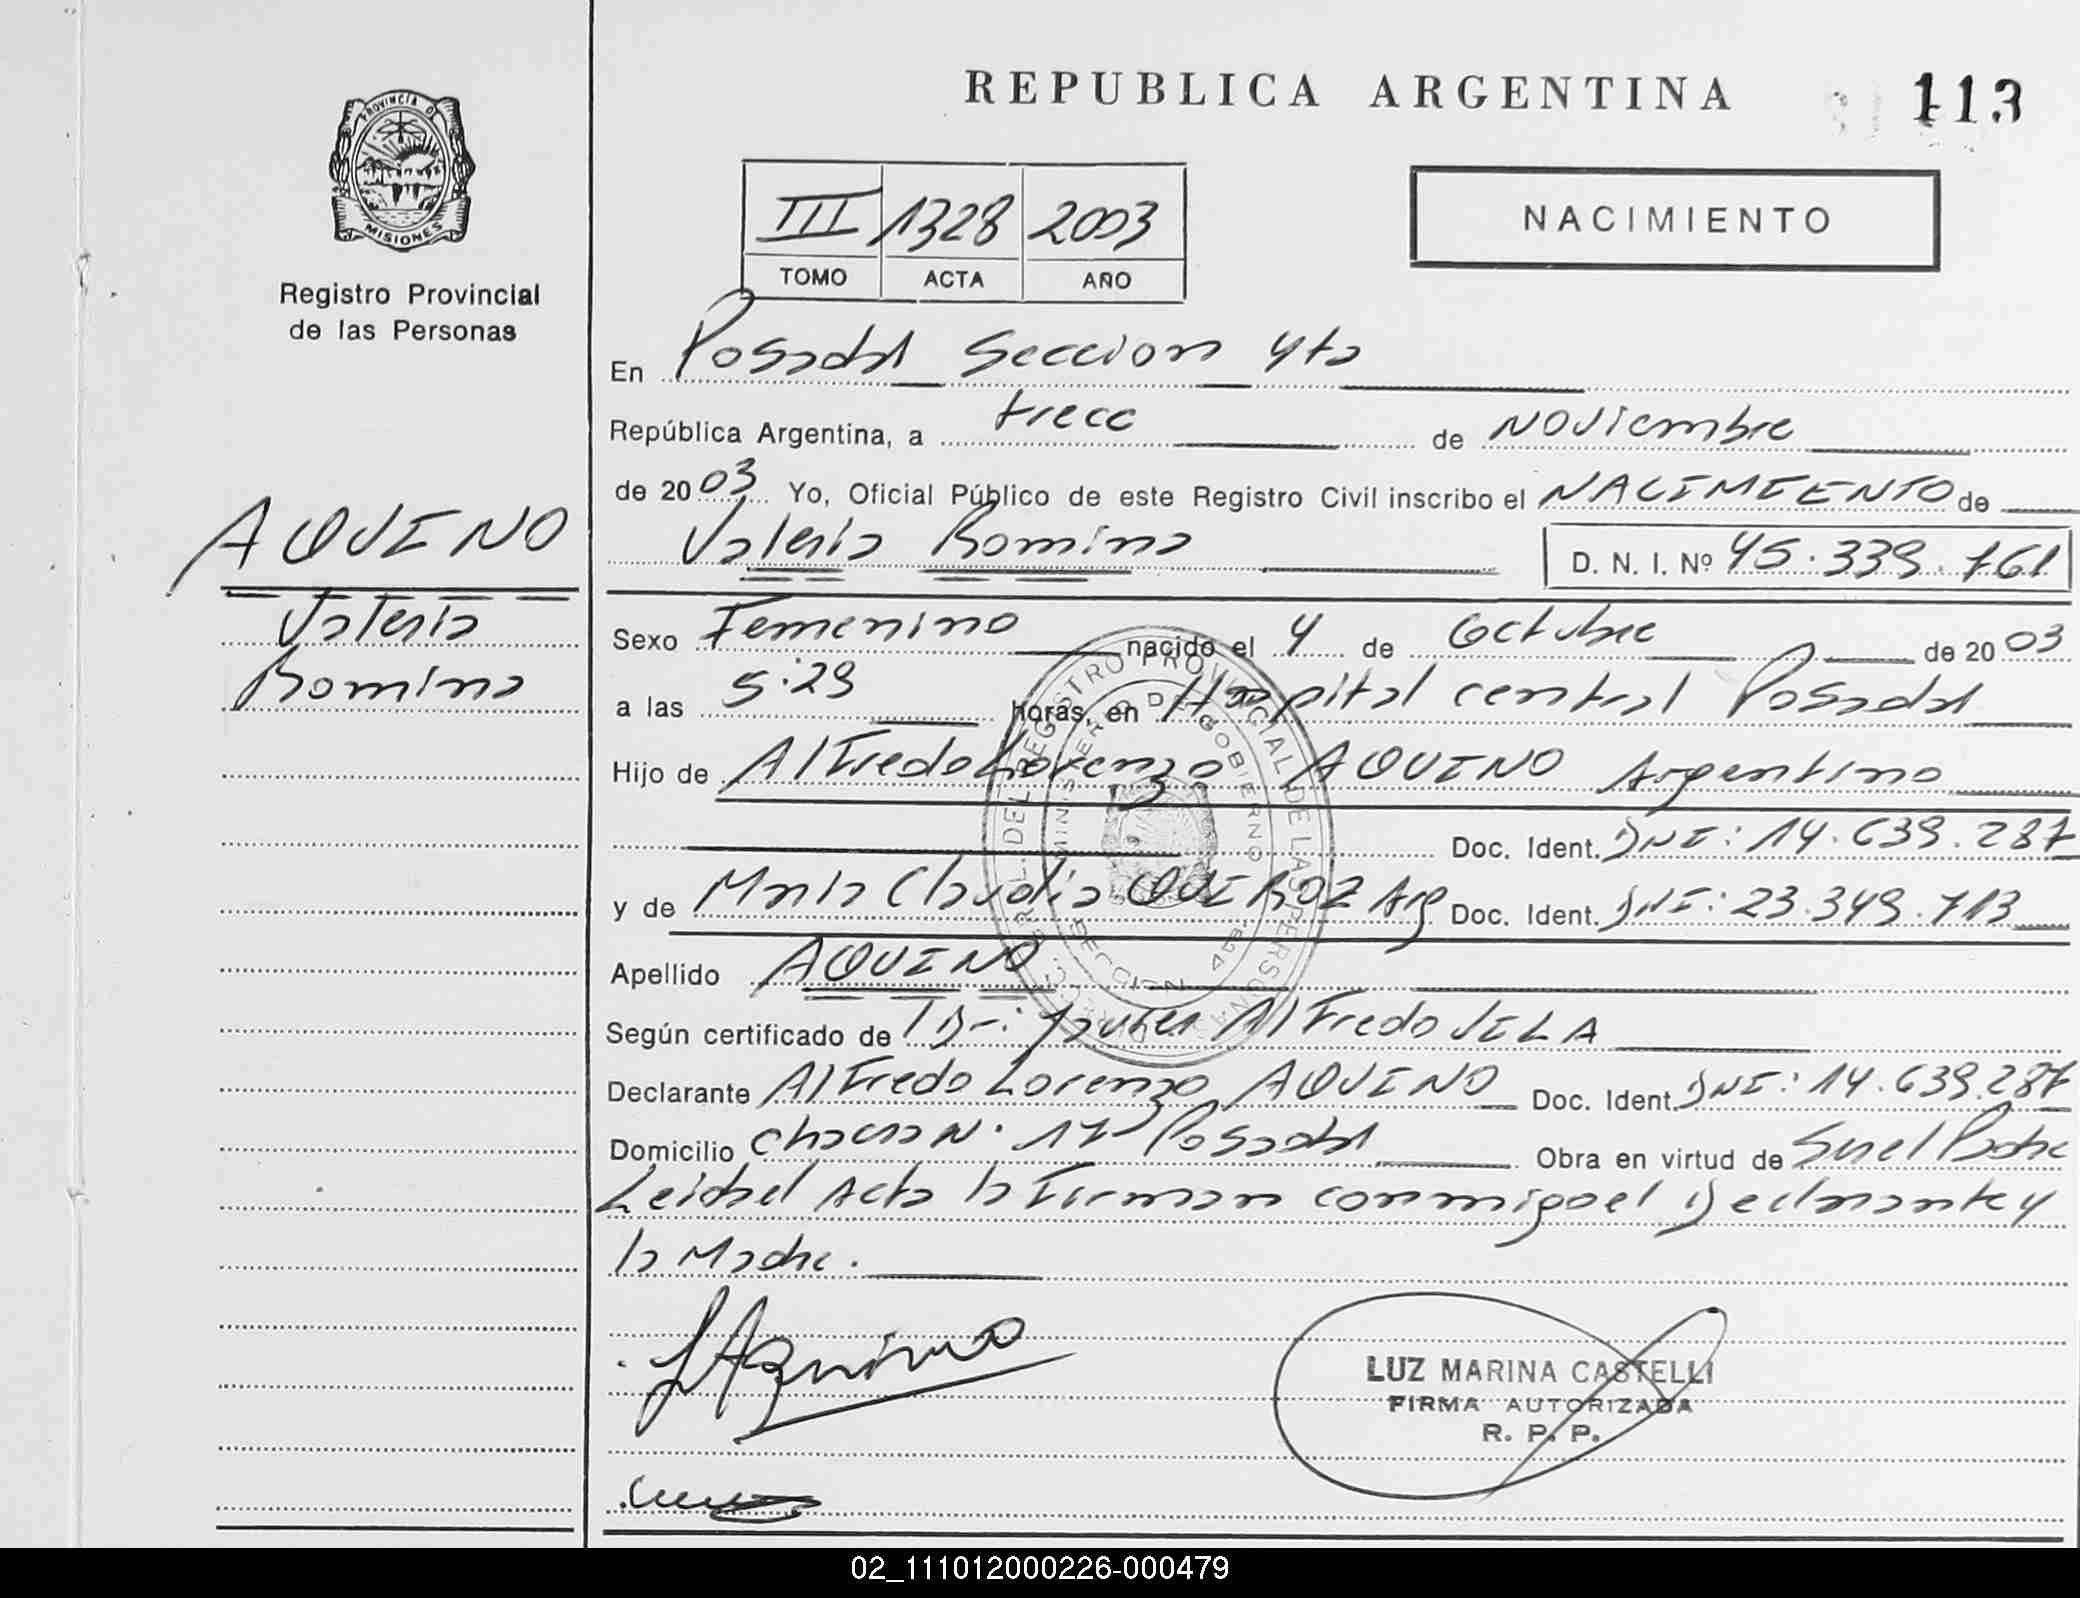 REPUBLICA ARGENTINA
113
PROVINCIA DE
MISIONES
Registro Provincial
de las Personas
III 1328 2003
TOMO ACTA AÑO
NACIMIENTO
En Posadas Seccion 4ta
República Argentina, a trece de Noviembre
de 2003 Yo, Oficial Público de este Registro Civil inscribo el NACIMIENTO de
Valeria Romina
D. N. I. Nº 45.339.761
AQUINO
Valeria
Romina
Sexo Femenino nacido el 4 de Octubre de 2003
a las 5:29 horas, en Hospital central Posadas
Hijo de Alfredo Lorenzo AQUINO Argentino
Doc. Ident. DNI: 14.639.287
y de Maria Claudia QUEIROZ Arg Doc. Ident. DNI: 23.349.713
Apellido AQUINO
Según certificado de Dr: Javier Alfredo VELA
Declarante Alfredo Lorenzo AQUINO Doc. Ident. DNI: 14.639.287
Domicilio Chacra N. 17 Posadas Obra en virtud de Ser el Padre
Leida el Acta la Firman conmigo el Declarante y
la Madre.
Aquino
LUZ MARINA CASTELLI
FIRMA AUTORIZADA
R. P. P.
02_111012000226-000479